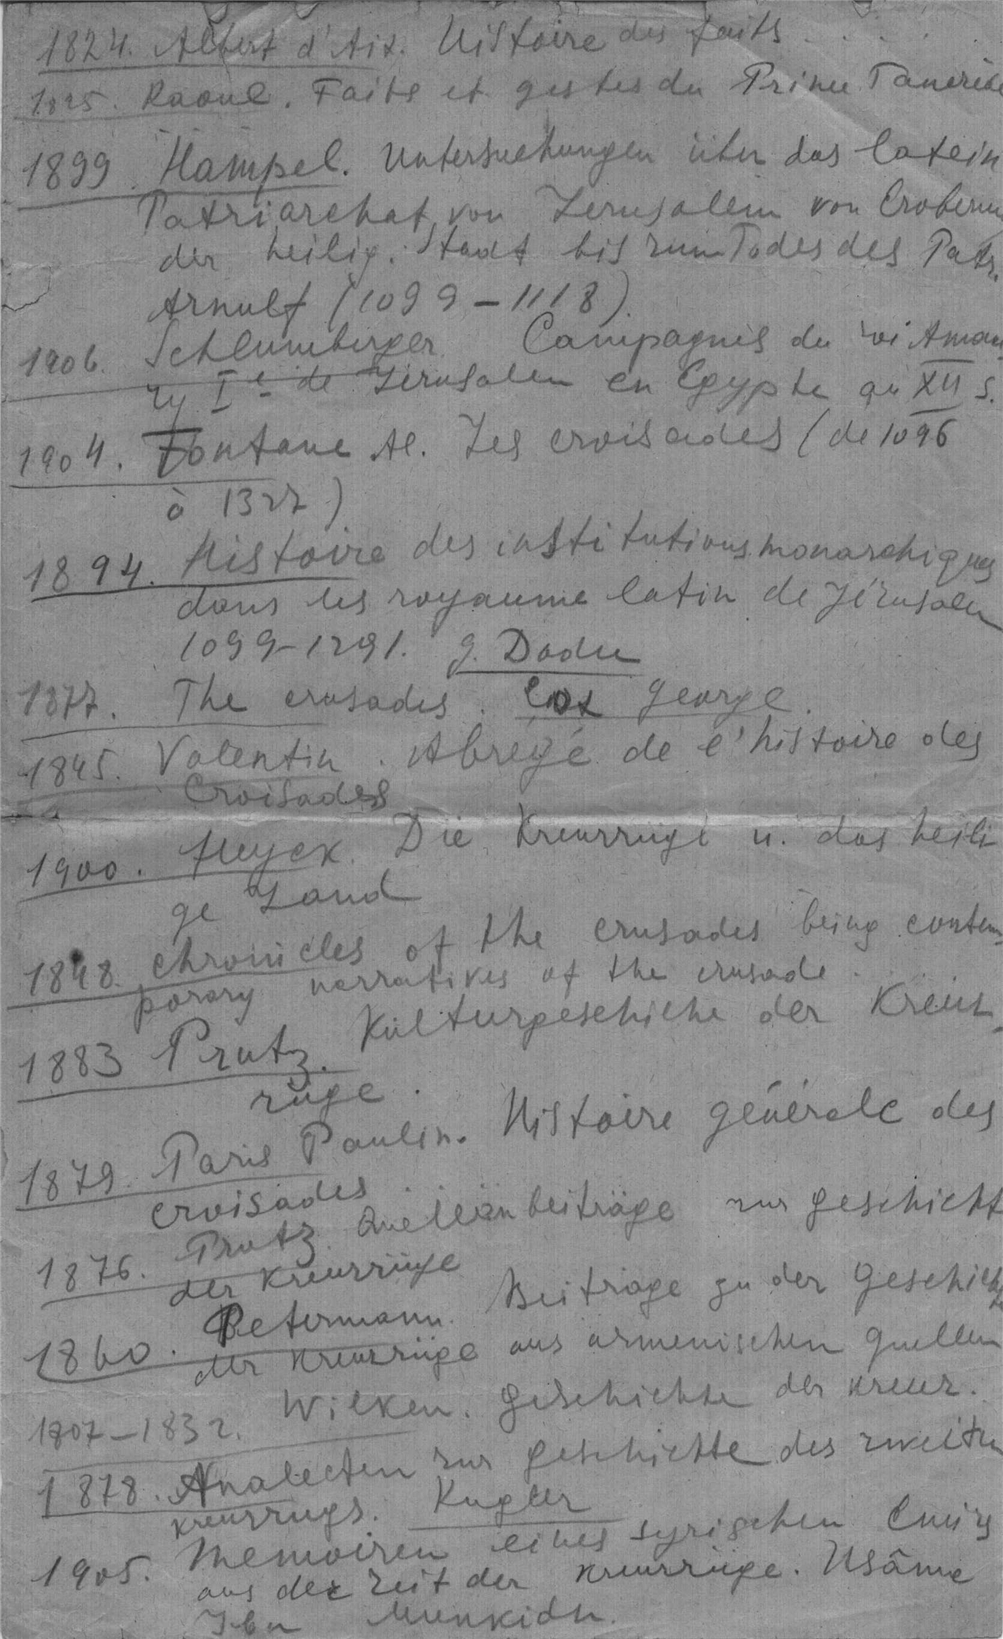 1824. Albert d'Aix. Histoire des faits . . . .
1825. Raoul. Faits et gestes du Prince Tancrède
1899. Hampel. Untersuchungen über das latein
Patriarchat von Jerusalem von Eroberun
der heilig. Stadt bis zum Todes des Patr.
Arnulf (1099–1118)
1906. Schlumberger Campagnes du roi Amau
ry Ier de Jérusalem en Egypte au XII s.
1904. Fontane M. Les croisades (de 1096
à 1327)
1894. Histoire des institutions monarchiques
dans les royaume latin de Jérusalem
1099-1291. G. Dodu
1877. The crusades. Cox George.
1845. Valentin. Abrégé de l'histoire des
Croisades
1900. Heyck. Die Kreuzzüge u. das heili
ge Land
1848. Chronicles of the crusades being contem
porary narratives of the crusade.
1883 Prutz. Kulturgeschichte der Kreuz
züge.
1879. Paris Paulin. Histoire générale des
croisades.
1876. Prutz. Quellenbeiträge zur Geschicht
der Kreuzzüge
1860. Petermann. Beiträge zu der Geschicht
der Kreuzzüge aus armenischen Quellen
1807–1832. Wilken. Geschichte der Kreuz.
1878. Analecten zur Geschichte des zweiten
Kreuzzugs. Kugler
1905. Memoiren eines syrischen Emirs
aus der Zeit der Kreuzzüge. Usâma
Ibn Munkidh.